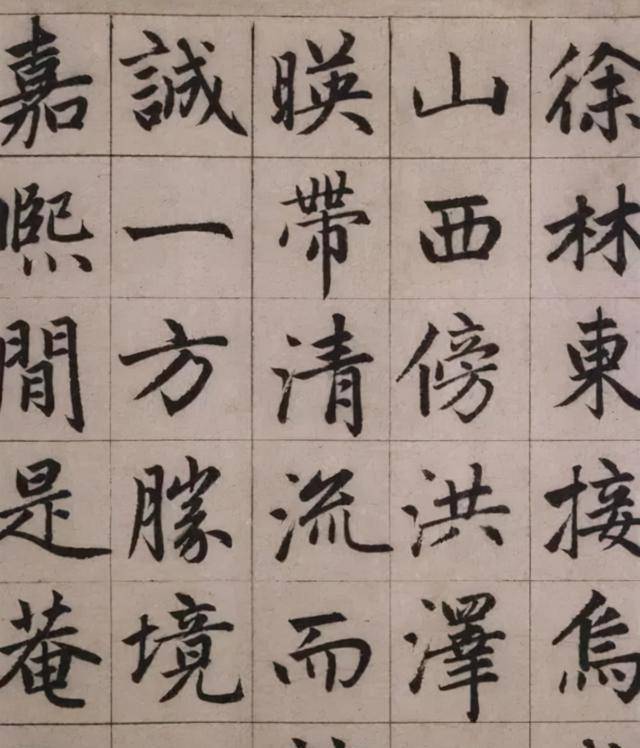 徐林東接烏
山西傍洪澤
暎帶清流而
誠一方勝境
嘉熙間是菴